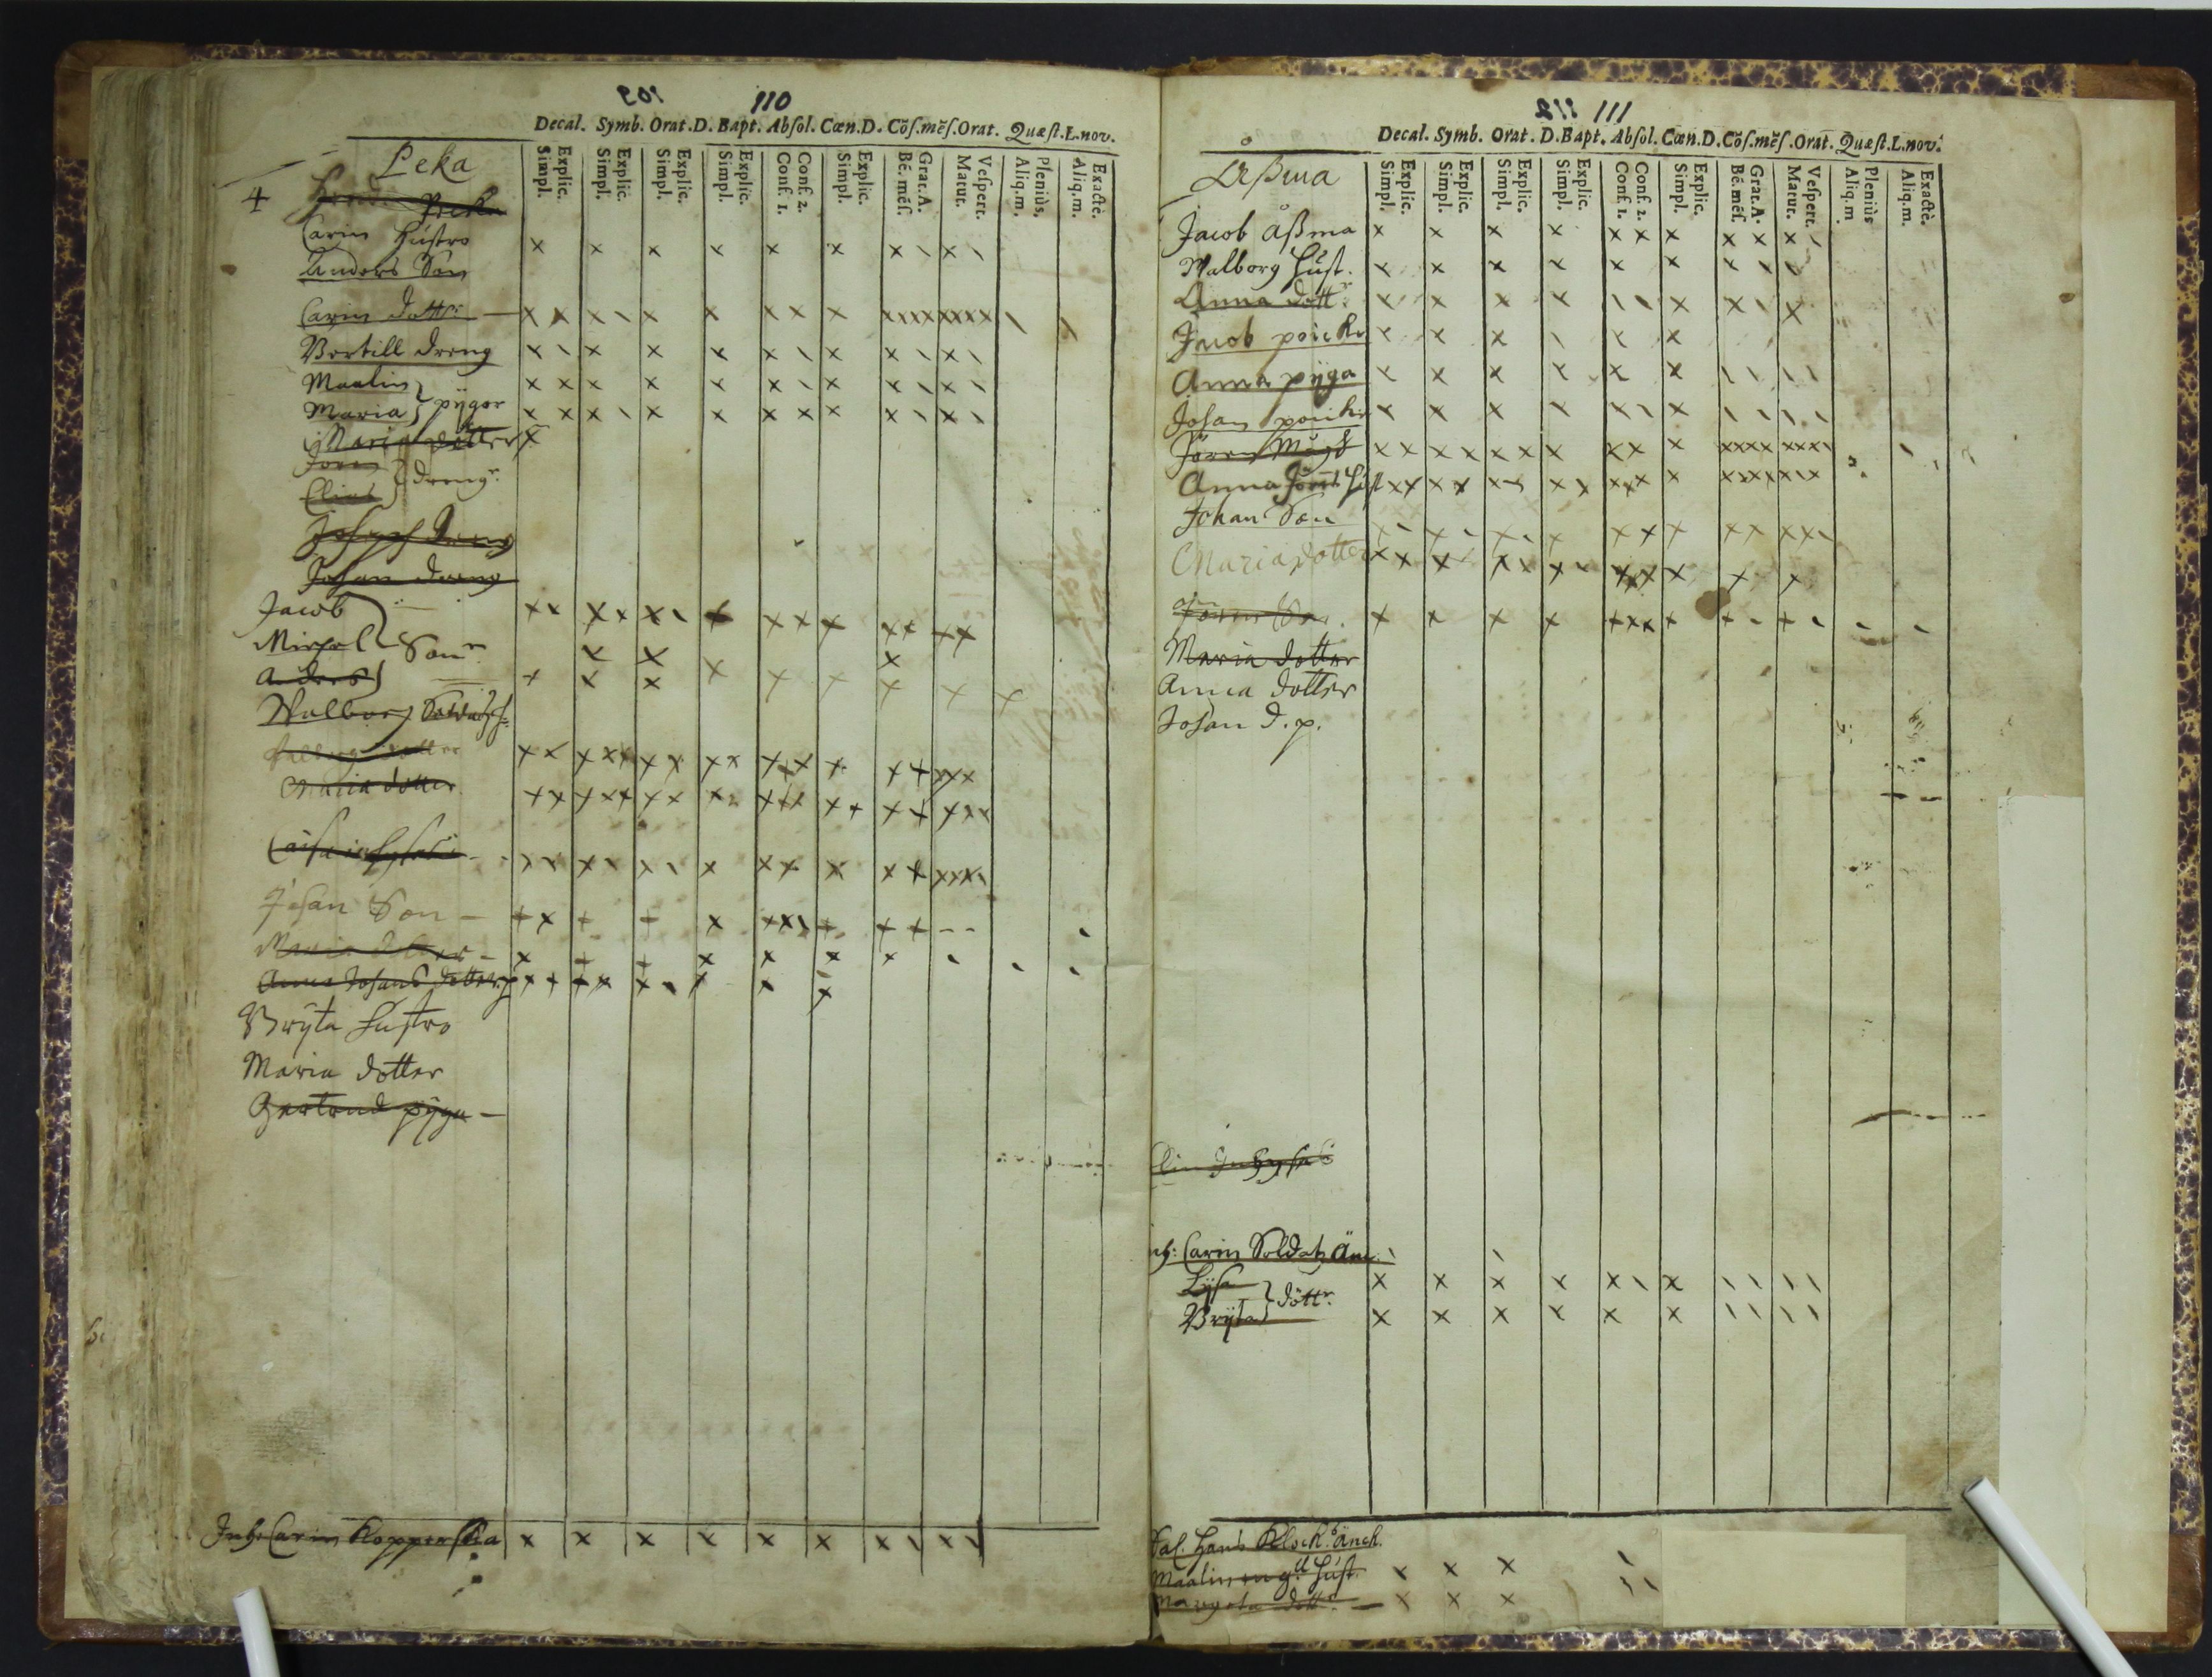 109 110
Decal. Symb. Orat. D. Bapt. Abſol. Cœn. D. Cõſ. mẽſ. Orat. Quæſt. L. nov.
Explic. Simpl. Explic. Simpl. Explic. Simpl. Explic. Simpl. Conf. 2. Conf. 1. Explic. Simpl. Grat. A. Bẽ. mẽſ. Veſpert. Matut. Pleniùs. Aliq. m. Exactè. Aliq. m.
Leka
4
Carin hustro
Anders Son
Carin dotter
Bertill dreng
Maalin
Maria pÿgor
Maria dotter
Jören
Elias drengr
Joseph dreng
Johan dreng
Jacob
Michel Sönr
Anders
Walborg
Maria dotter
Johan Son
Maria dotter
Anna Johans dotter
Brÿta hustro
Maria dotter
Gertrud pÿga
Inh: Carin Kopperska
112 111
Decal. Symb. Orat. D. Bapt. Abſol. Cœn. D. Cõſ. mẽſ. Orat. Quæſt. L. nov.
Explic. Simpl. Explic. Simpl. Explic. Simpl. Explic. Simpl. Conf. 2. Conf. 1. Explic. Simpl. Grat. A. Bẽ. mẽſ. Veſpert. Matut. Pleniùs Aliq. m Exactè. Aliq. m.
Åßma
Jacob Åßma
Walborg hust.
Anna dottr
Jacob poicke
Anna pÿga
Johan poicke
Jören Mågh
Anna Jörens hust
Johan Son
Maria dotter
Jören Son
Maria dotter
Anna dotter
Johan d. p.
Elin Inhyses
inh: Carin Soldatz Än.
Lÿsa
Brÿta döttr
Sal. Hans Klock. Änck.
Maalin hust
Margeta dottr